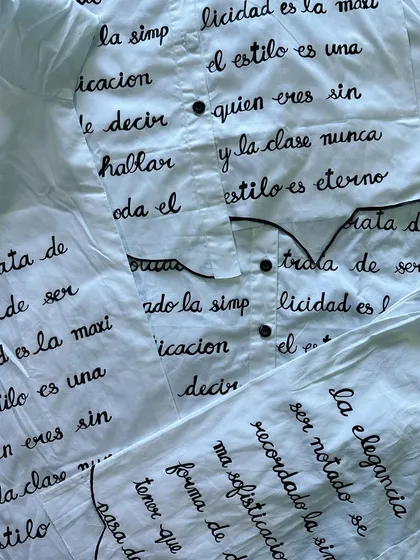 la simp
licidad es la maxi
icacion
el estilo es una
de decir
quien eres sin
hablar
y la clase nunca
oda el
estilo es eterno
rata d
trata de ser
ado la simp
licidad es l
icacion
el es
decir
ata de
de ser
d es la maxi
ilo es una
n eres sin
la clase nun
stilo
la elegancia
ser notado se
recordado la sim
ma sofisticacio
forma de d
temer que
pasa de